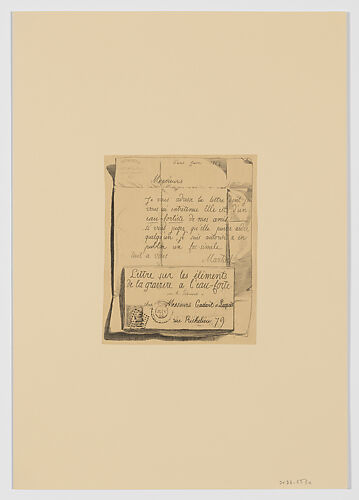 Paris Juin
Messieurs
Je vous adresse la lettre dont je
vous ai entretenu Elle est d'un
eau-fortiste de mes amis
si vous jugez qu'elle puisse aider
quelqu'un je suis autorisé à en
publier un fac simile.
tout à vous Martial
Lettre sur les éléments
de la gravure à l'eau-forte
chez Messieurs Cadart & Luquet
rue Richelieu 79